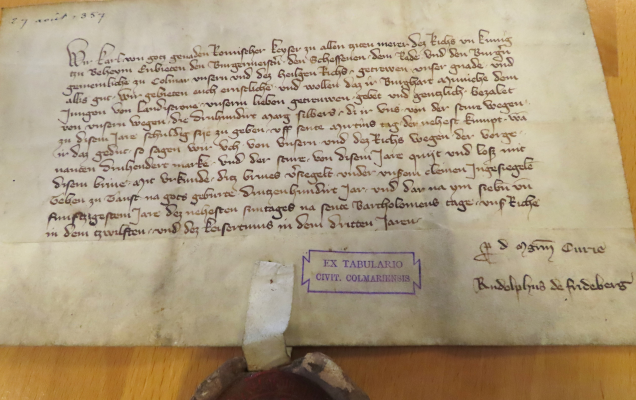 27 août 1357
Wir Karl von gots genaden Romischer keyser zu allen ziten merer dez Richs vn kunig
zu Beheim Enbieten den Burgermeistern den Scheffenen dem Rate und den Burgern
gemeinlich zu Colmar vnsern vnd dez heiligen Richs getrewen vnser gnade vnd
allez gut. Wir gebieten euch ernstliche vnd wollen daz ir Burghart Mnniche dem
Jungen von Landskrone vnserm lieben getruwen gebet vnd gentzlich bezalet
von vnsern wegen die Drihundert marg silbers die ir vns von der stewr wegen
zu disem Jare schuldig siit zu geben vff sente Mertins tag der nehest kumpt wa
ir daz gedut so sagen wir vch von vnsern vnd dez Richs wegen der vorge
nanten Drihundert marke vnd der stewr von disem Jare quijt vnd loß mit
disem brive mit vrkunde ditz brives v'sigelt vnder vnserm cleinen Ingesiegele
Geben zu na gots geburte Drutzenhundirt Jar vnd dar na ym siebn vn
funftzigestem Jare dez nehesten suntages na sente Bartholomeus tage vnsr Riche
in dem tzwelften vnd dez keisertumes in dem dritten Jaren
EX TABULARIO
CIVIT. COLMARIENSIS
p d Curie
Rudolphus de frideberg